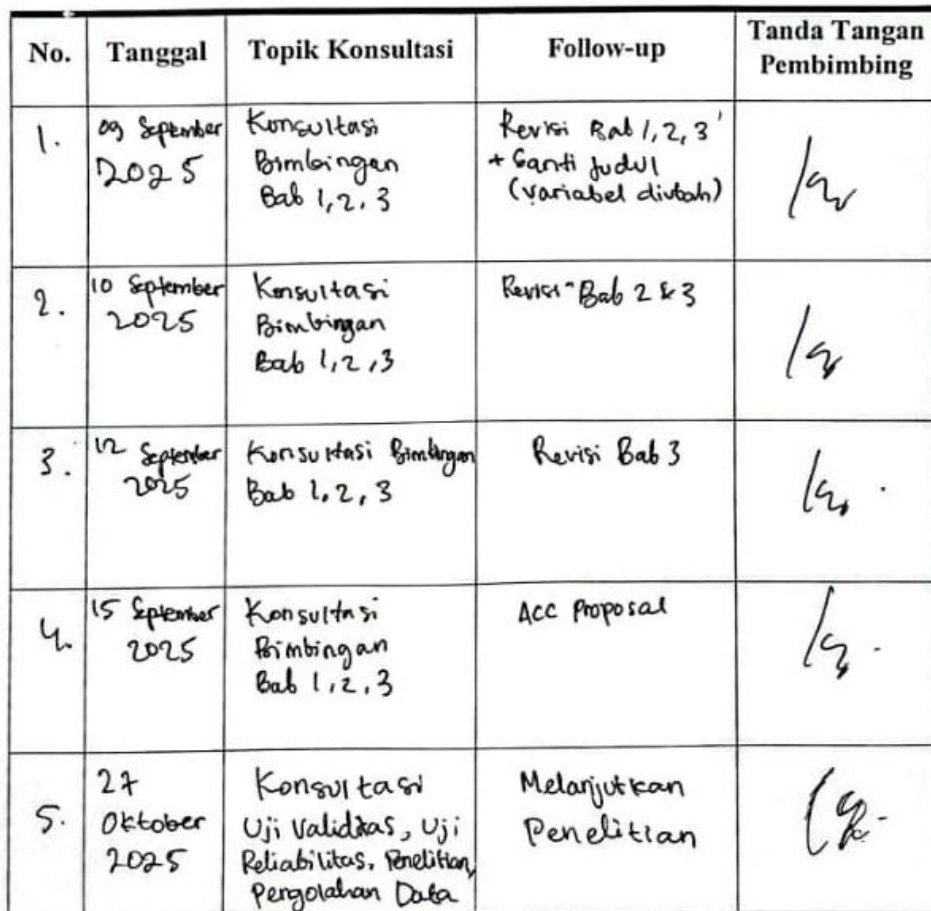 No.
Tanggal
Topik Konsultasi
Follow-up
Tanda Tangan
Pembimbing
1.
09 September
2025
Konsultasi
Bimbingan
Bab 1, 2, 3
Revisi Bab 1, 2, 3
+ Ganti Judul
(variabel diubah)
2.
10 September
2025
Konsultasi
Bimbingan
Bab 1, 2, 3
Revisi Bab 2 & 3
3.
12 September
2025
Konsultasi Bimbingan
Bab 1, 2, 3
Revisi Bab 3
4.
15 September
2025
Konsultasi
Bimbingan
Bab 1, 2, 3
ACC Proposal
5.
27
Oktober
2025
Konsultasi
Uji Validitas, Uji
Reliabilitas, Penelitian,
Pengolahan Data
Melanjutkan
Penelitian